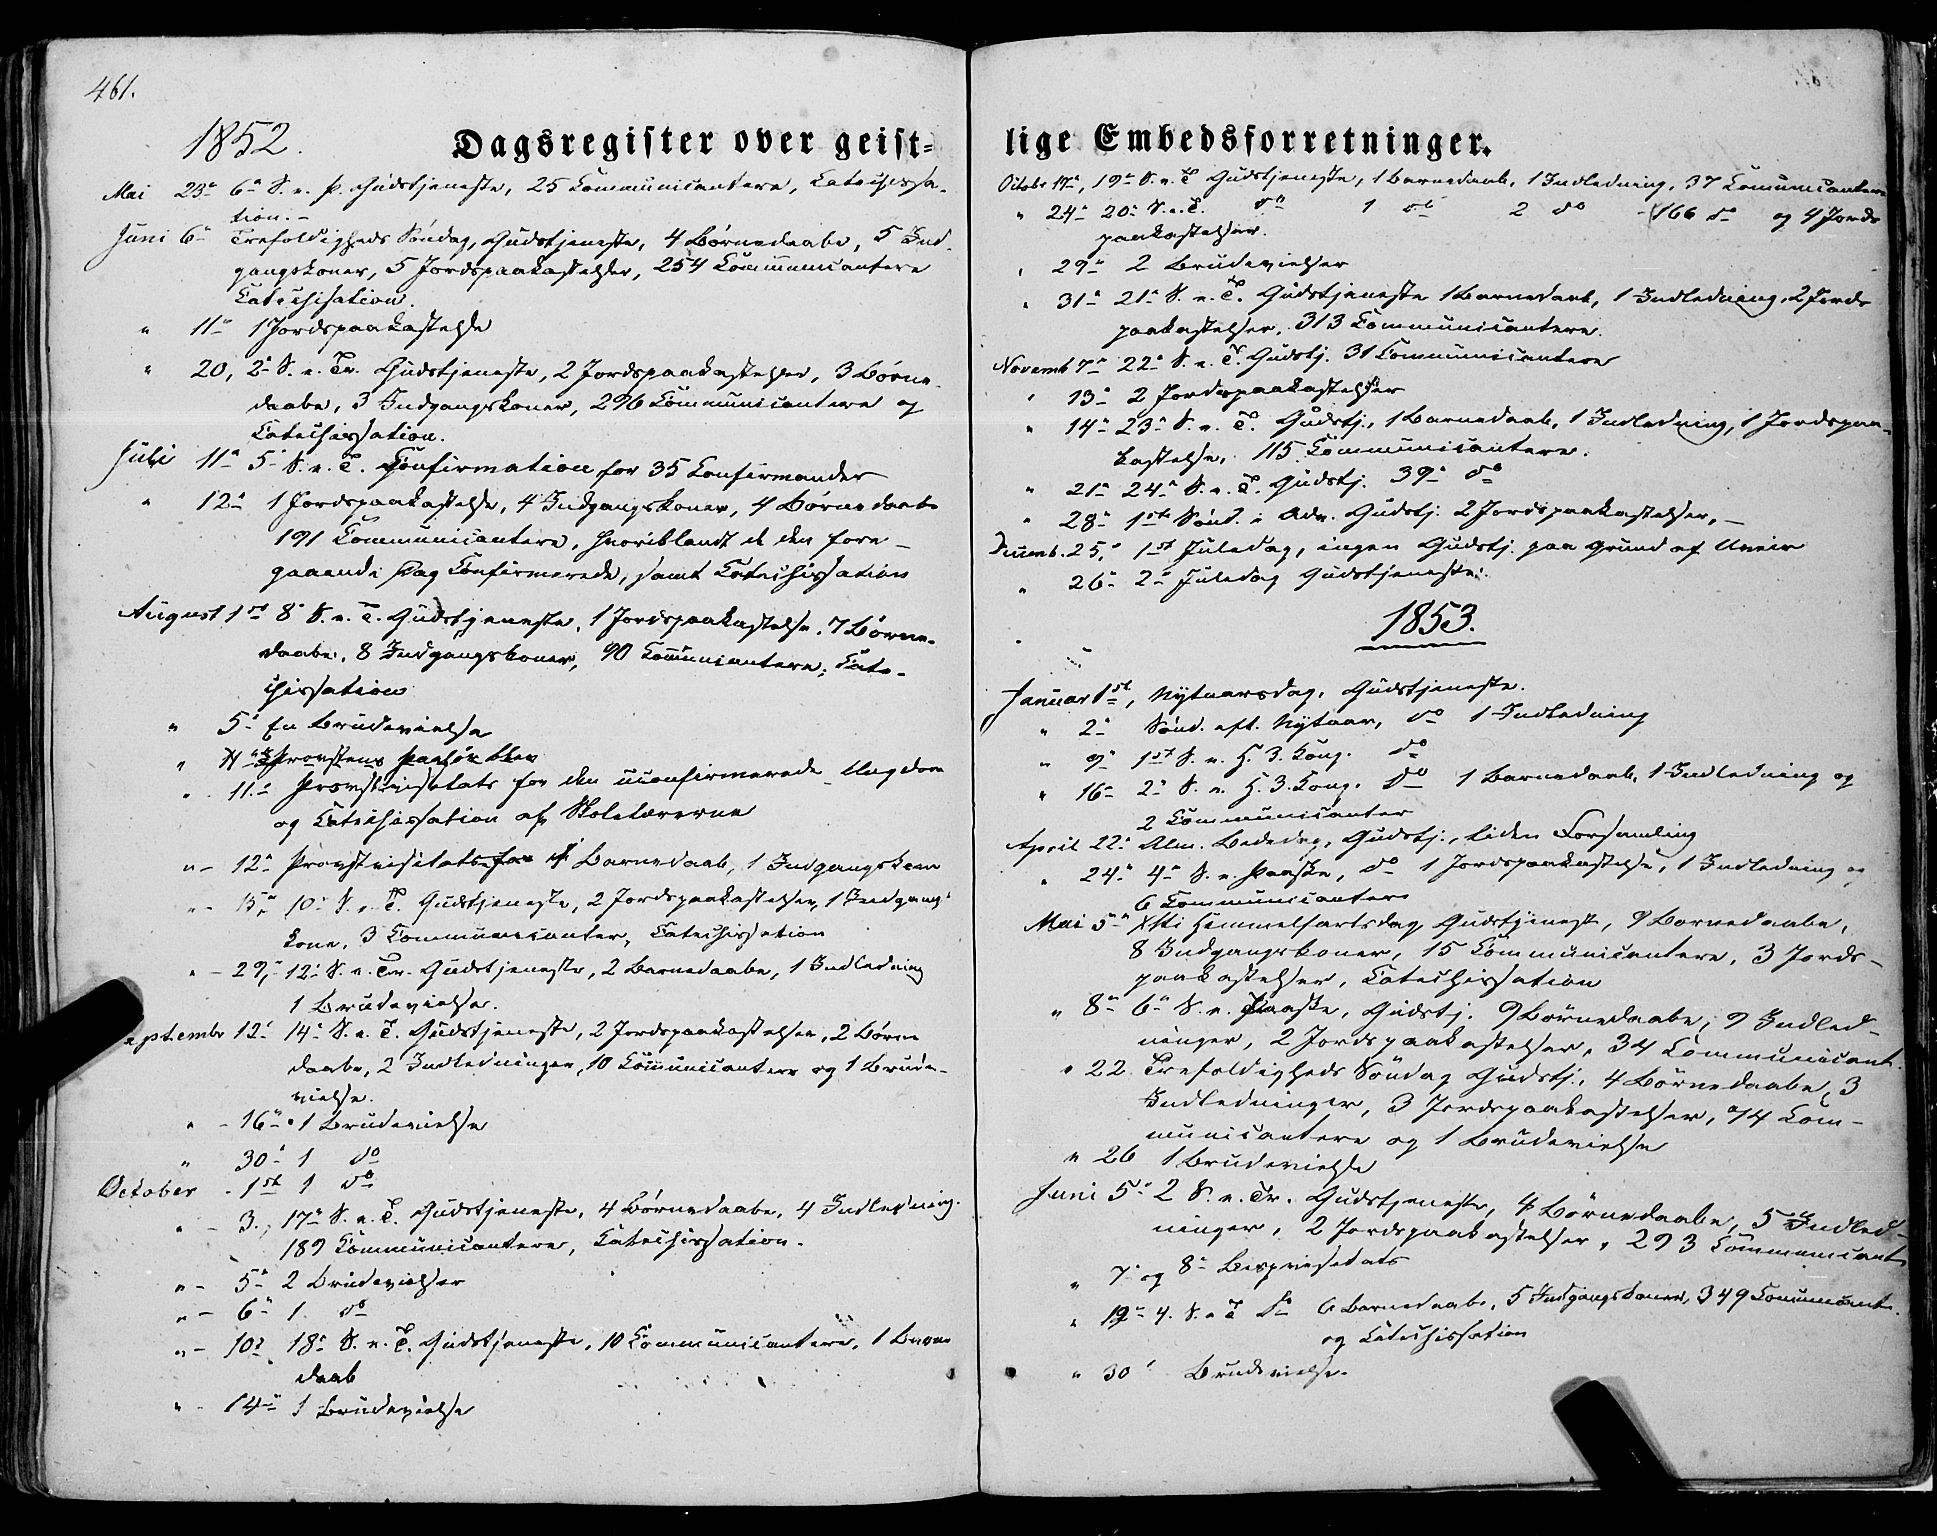 461.
1852.
Dagsregister over geist=
Mai 23de 6te S. e. P. Gudstjeneste, 25 Communicantere, Catechisa-
tion. -
Juni 6te Trefoldigheds Søndag, Gudstjeneste, 4 Børnedaabe, 5 Ind-
gangskoner, 5 Jordspaakastelser, 254 Communicantere
Catechisation.
" 11te 1 Jordspaakastelse
" 20, 2den S. e. Tr. Gudstjeneste, 2 Jordspaakastelser, 3 Børne-
daabe, 3 Indgangskoner, 296 Communicantere og
Catechisation.
Juli 11te 5te S. e. T. Confirmation for 35 Confirmander
" 12te 1 Jordspaakastelse, 4 Indgangskoner, 4 Børnedaabe
191 Communicantere, hvoriblandt de den fore-
gaaende Dag Confirmerede, samt Catechisation
August 1ste 8de S. e. T. Gudstjeneste, 1 Jordspaakastelse, 7 Børne-
daabe, 8 Indgangskoner, 90 Communicantere, Cate-
chisation
" 5te En Brudevielse
" 11te Provstevisitats for den uconfirmerede Ungdom
og Catechisation af Skolelærerne
" - 12te Provstvisitats for 1 Barnedaab, 1 Indgangskone
" - 15de 10de S. e. T. Gudstjeneste, 2 Jordspaakastelser, 1 Indgangs
kone, 3 Communicanter, Catechisation
" - 29, 12te S. e. Tr. Gudstjeneste, 2 Barnedaabe, 1 Indledning
1 Brudevielse.
Septembr 12te 14de S. e. T. Gudstjeneste, 2 Jordspaakastelser, 2 Børne
daabe, 2 Indledninger, 10 Communicantere og 1 Brude-
vielse.
" - 16de 1 Brudevielse
" 30te 1 do
October - 1ste 1 do
" - 3., 17de S. e. T. Gudstjeneste, 4 Børnedaabe, 4 Indledning.
189 Communicantere, Catechisation.
" - 5te 2 Brudevielser
" - 6te 1 do
" - 10de 18de S. e. T. Gudstjeneste, 10 Communicantere, 1 Barne
daab
" - 14de 1 Brudevielse
lige Embedsforretninger.
Octobr 17de, 19de S. e. T. Gudstjeneste, 1 Barnedaab, 1 Indledning, 37 Communicantere
" 24de 20de S. e. T. do 1 do 2 do 166 do og 4 Jords
paakastelser.
" 29de 2 Brudevielser
" 31te 21de S. e. T. Gudstjeneste 1 Barnedaab, 1 Indledning, 2 Jords
paakastelser, 313 Communicantere.
Novemb 7de 22de S. e. T. Gudstj. 31 Communicantere
" 13de 2 Jordspaakastelser
" 14de 23de S. e. T. Gudstj., 1 Barnedaab, 1 Indledning, 1 Jordspaa-
kastelse, 115 Communicantere.
" 21de 24de S. e. T. Gudstj. 39 do
" 28de 1ste Sønd. i Adv. Gudstj. 2 Jordspaakastelser, -
Decemb. 25, 1st Juledag, ingen Gudstj. paa Grund af Uveir
" 26de 2den Juledag Gudstjeneste.
1853.
Januar 1ste, Nytaarsdag, Gudstjeneste.
" 2den Sønd. eft. Nytaar, do 1 Indledning
" 9de 1st S. e. H. 3. Kong. do
" 16de 2den S. e. H. 3. Kong. do 1 Barnedaab, 1 Indledning og
2 Communicanter
April 22de Alm. Bededag, Gudstj., liden Forsamling
" 24de 4de S. e. Paaske, do 1 Jordspaakastelse, 1 Indledning og
6 Communicanter
Mai 5te Xsti Himmelfartsdag Gudstjenest, 9 Børnedaabe,
8 Indgangskoner, 15 Communicantere, 3 Jords-
paakastelser, Catechisation
" 8de 6te S. e. Paaske, Gudstj. 9 Børnedaabe, 9 Indled-
ninger, 2 Jordspaakastelser, 34 Communicant.
" 22 Trefoldigheds Søndag Gudstj., 4 Børnedaabe, 3
Indledninger, 3 Jordspaakastelser, 74 Com-
municantere og 1 Brudevielse
" 26 1 Brudevielse
Juni 5te 2 S. e. Tr. Gudstjeneste, 4 Børnedaabe, 5 Indled-
ninger, 2 Jordspaakastelser, 293 Communicant
" 7de og 8de Bispevisitats
" 19de 4. S. e T do 6 Barnedaabe, 5 Indgangskoner, 349 Communicant.
og Catechisation
" 30 Brudevielse.